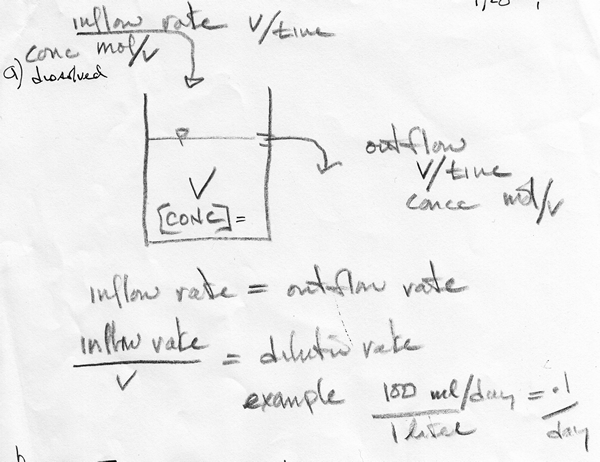 inflow rate V/time
conc mol/v
a) dissolved
outflow
V/time
V
concc mol/v
[CONC]=
inflow rate = outflow rate
inflow rate
= dilutio rate
V
example 100 ml/day = .1
1 liter day